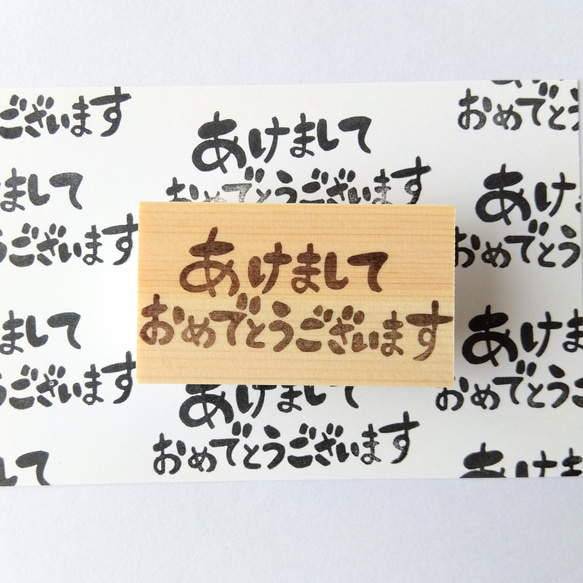 ございます
あけまして
おめでとう
して
おめでとうございます
あけ
ございます
あけまして
おめでとう
おめでとうございます
して
あけ
ございます
あけまして
おめでとう
おめでとうございます
して
あけま